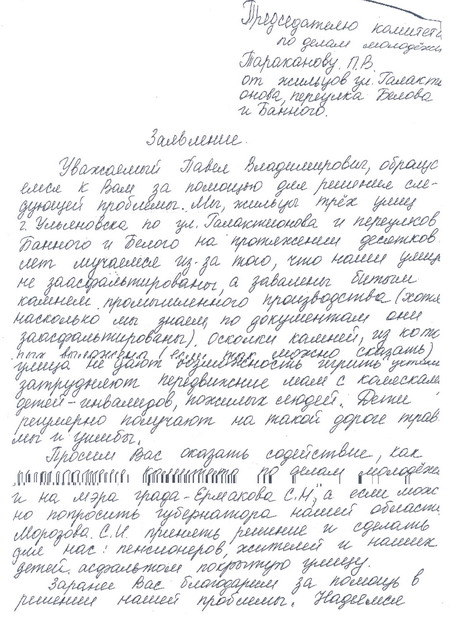 Председателю комитета
по делам молодёжи
Тараканову. П.В.
от жильцов ул. Галакти
онова, переулка Белова
и Банного.
Заявление.
Уважаемый Павел Владимирович, обращ
емся к Вам за помощью для решения сле-
дующей проблемы. Мы, жильцы трёх улиц
г. Ульяновска по ул. Галактионова и переулков
Банного и Белого на протяжении десятков
лет мучаемся из-за того, что наши улиц
не заасфальтированы, а завалены битым
камнем промышленного производства (хотя
насколько мы знаем по документам они
заасфальтированы). Осколки камней, из кото
рых выложены (если так можно сказать)
улица не дают возможность играть детям
затрудняют передвижение мам с колясками
детей-инвалидов, пожилых людей. Дети
регулярно получают на такой дороге трав
мы и ушибы.
Просим Вас оказать содействие, как
по делам молодёжи
и на мэра града-Ермакова С.Н, а если мож
но попросить губернатора нашей области
Морозова. С.И. принять решение и сделать
для нас: пенсионеров, жителей и наших
детей асфальтом покрытую улицу.
Заранее Вас благодарим за помощь в
решении нашей проблемы. Надеемся